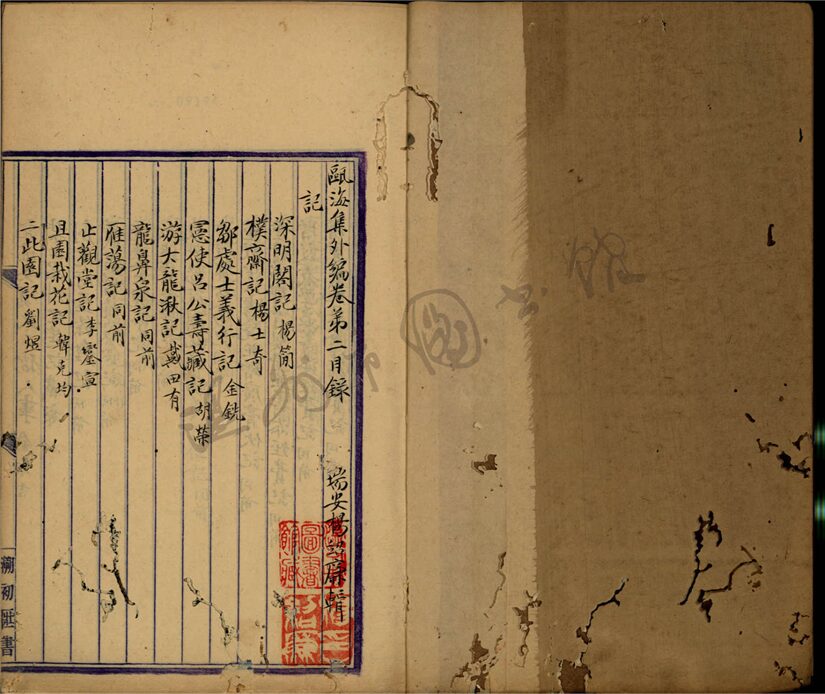 甌海集外編卷第二目錄
瑞安楊紹廉輯
記
深明閣記 楊簡
樸齋記 楊士奇
鄒處士義行記 金銑
憲使呂公壽藏記 胡榮
游大龍湫記 戴田有
龍鼻泉記 同前
雁蕩記 同前
止觀堂記 李鑾宣
且園栽花記 韓克均
二此園記 劉煜